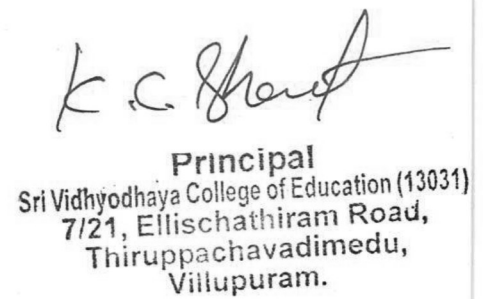 K.C. Bharat
Principal
Sri Vidhyodhaya College of Education (13031)
7/21, Ellischathiram Road,
Thiruppachavadimedu,
Villupuram.